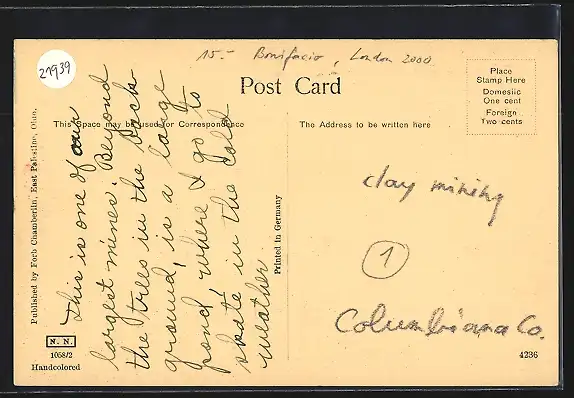 27939
15.- Bonifacio, London 2000
Post Card
Place
Stamp Here
Domestic
One cent
Foreign
Two cents
This Space may be used for Correspondence
The Address to be written here
Published by Forb Chamberlin, East Palestine, Ohio.
This is one of our
largest mines. Beyond
the trees in the back
ground, is a large
pond where I go to
skate in the cold
weather
Printed in Germany
clay mining
1
Columbiana Co.
N. N.
1058/2
Handcolored
4236